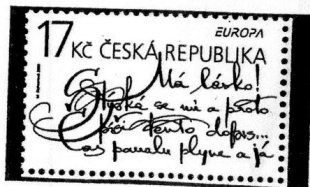 EUROPA
17 Kč ČESKÁ REPUBLIKA
Má lásko!
Stýská se mi a proto
píši tento dopis...
čas pomalu plyne a já